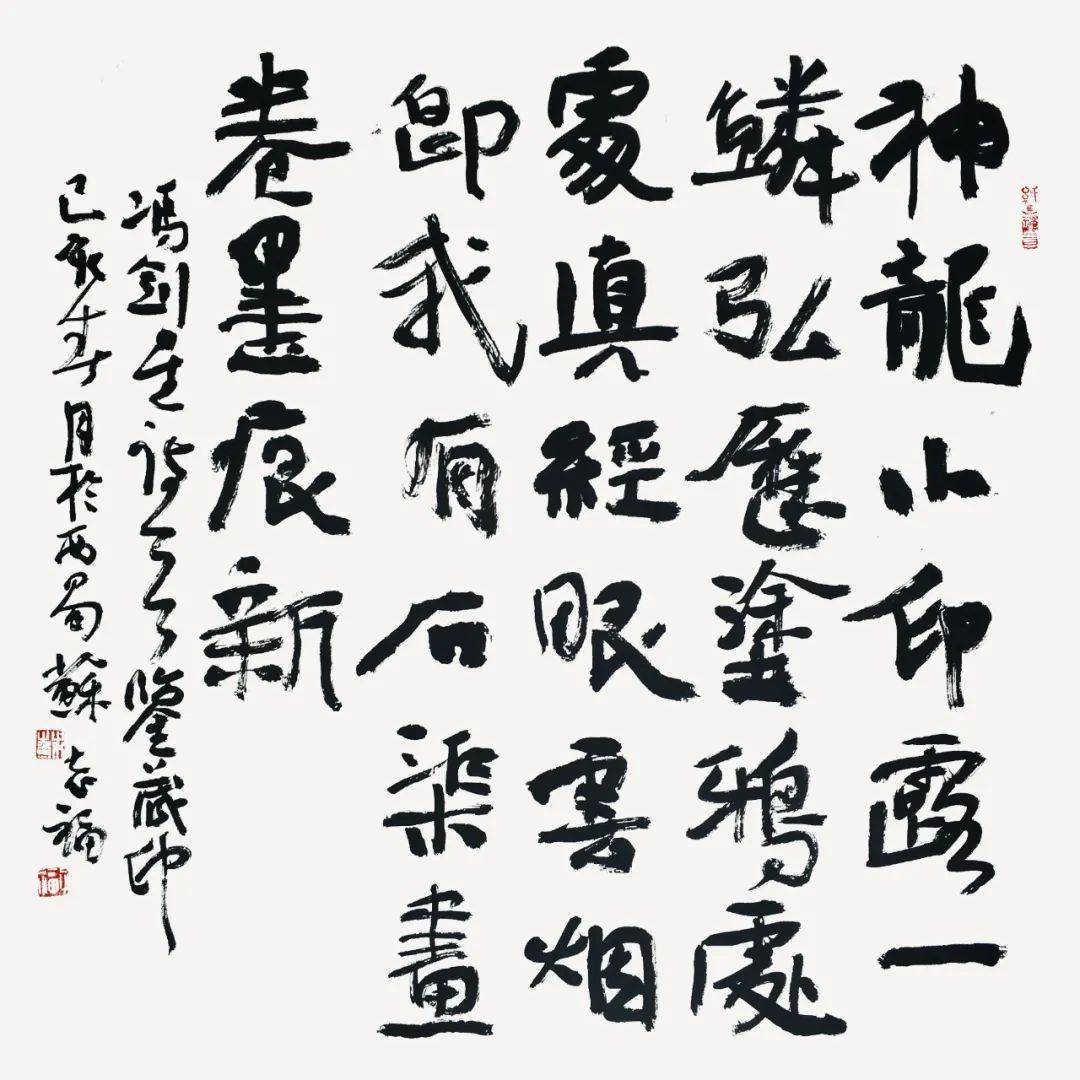 神龍小印露一
鱗弘曆塗鴉處
處真經眼雲烟
即我有石渠畫
卷墨痕新
馮劍詩鑒藏印
己亥春月於西蜀蘇志福